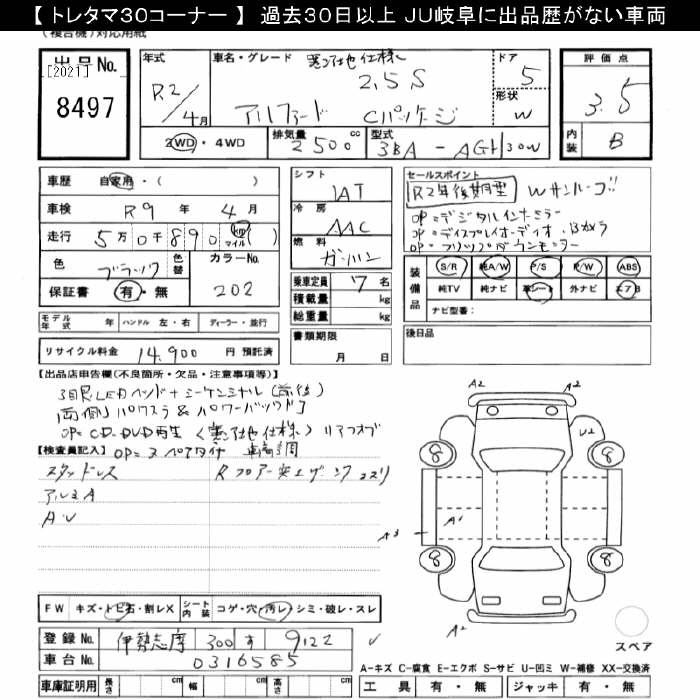 【 トレタマ30コーナー 】 過去30日以上 JU岐阜に出品歴がない車両
(複合機)対応用紙
出品No.
[2021]
8497
年式
R2/4月
車名・グレード
寒冷地仕様
2.5S
アルファード Cパッケージ
ドア
5
形状
W
2WD・4WD
排気量
2500cc
型式
3BA - AGH30W
評価点
3.5
内装
B
車歴 自家用・( )
車検 R9年 4月
走行 5万0千890 km マイル
色 ブラック
色替
カラーNo.
202
保証書 有・無
シフト
IAT
冷房
AAC
燃料
ガソリン
乗車定員 7名
積載量 kg
総重量 kg
書類期限
月 日
セールスポイント
R2年後期型 Wサンルーフ!!
OP=デジタルインナーミラー
OP=ディスプレイオーディオ・Bカメラ
OP=フリップダウンモニター
装備品
S/R 純A/W P/S P/W ABS
純TV 純ナビ 革シート 外ナビ エアB
ナビ型番:
後日品
モデル年式 年 ハンドル 左・右 ディーラー・並行
リサイクル料金 14,900 円 預託済
【出品店申告欄(不良箇所・欠品・注意事項等)】
3眼LEDヘッド+シーケンシャル(前後)
両側パワスラ&パワーバックドア
OP=CD・DVD再生 (寒冷地仕様) リアフォグ
OP=スペアタイヤ
【検査員記入】
スタッドレス
アルミA
A・U
Rフロアー突上げ
コスリ
FW キズ・トビ石・割レX
シート内装 コゲ・穴・汚レ・シミ・破レ・スレ
登録No. 伊勢志摩 300 す 9122
車台No. 0316585
車庫証明用 長さ cm 幅 cm 高さ cm
A2
A2
U2
8
8
A3
A1
8
8
A2
スペア
A-キズ C-腐食 E-エクボ S-サビ U-凹ミ W-補修 XX-交換済
工具 有・無 ジャッキ 有・無